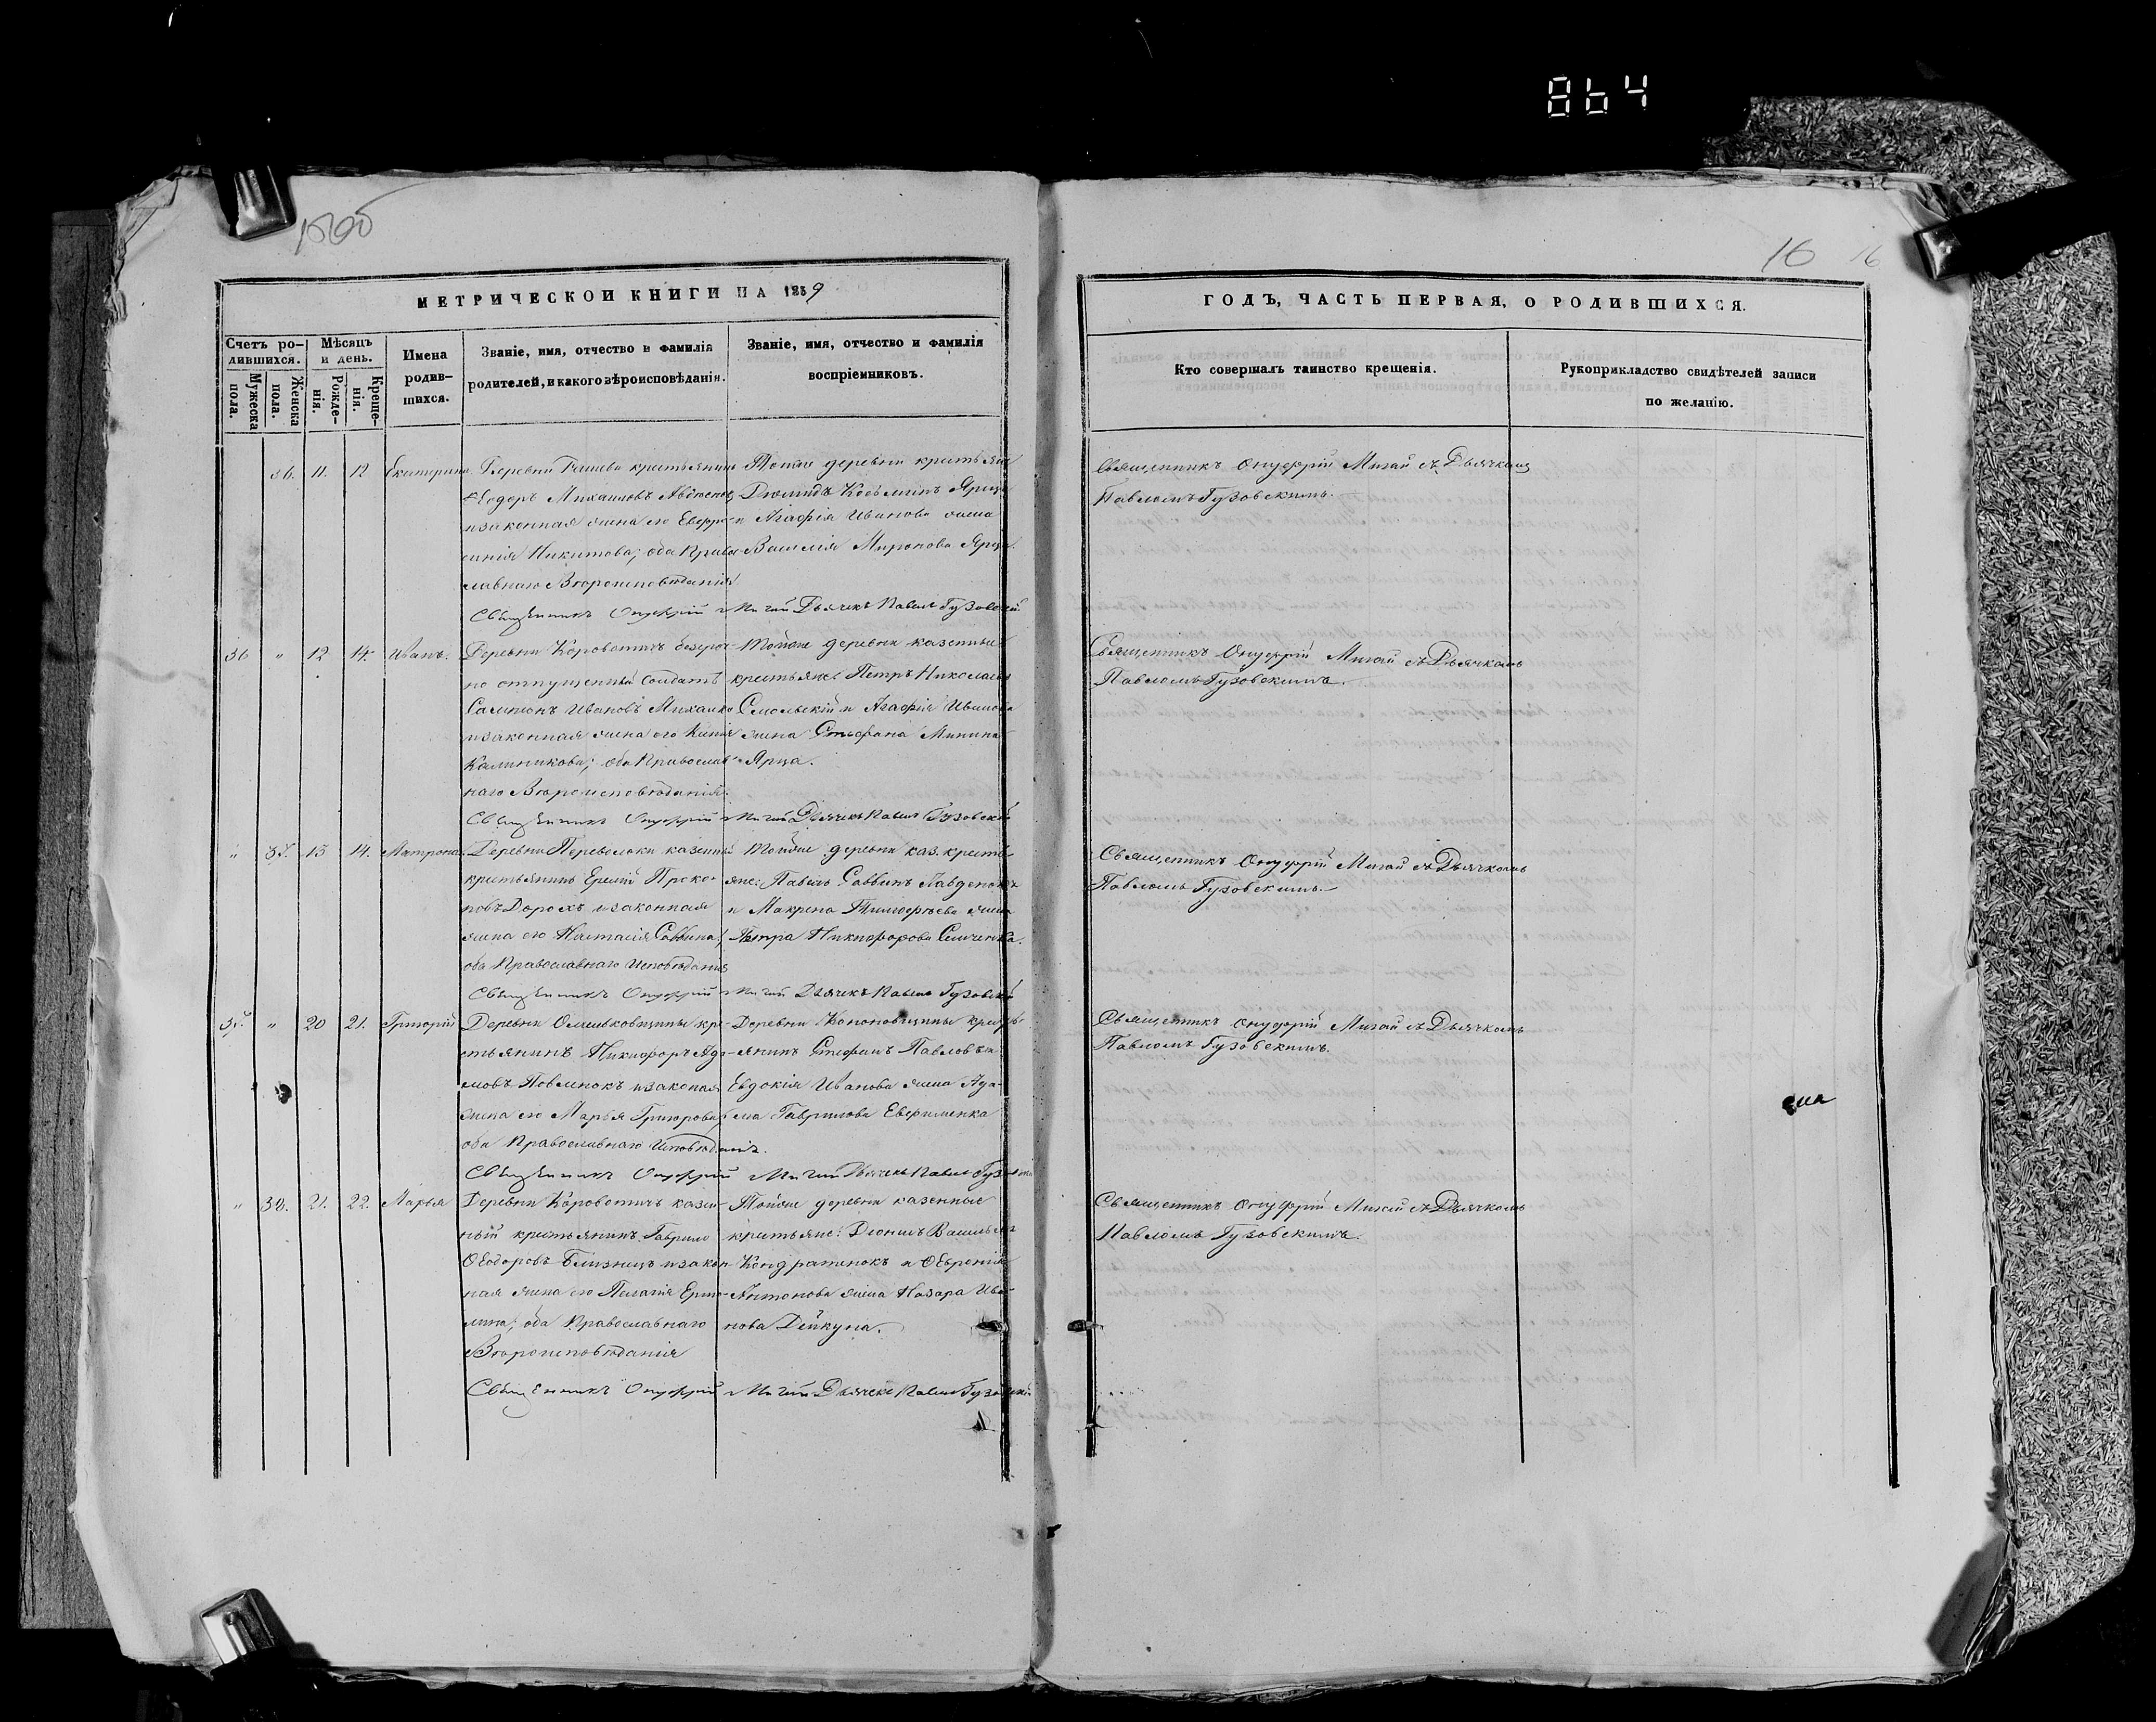 864
16 16
МЕТРИЧЕСКОЙ КНИГИ НА 1859
ГОДЪ, ЧАСТЬ ПЕРВАЯ, О РОДИВШИХСЯ.
Счетъ ро-
дившихся.
Мужеска
пола.
Женска
пола.
Мѣсяцъ
и день.
Рожде-
нія.
Креще-
нія.
Имена
родив-
шихся.
Званіе, имя, отчество и фамилія
родителей, и какого вѣроисповѣданія.
Званіе, имя, отчество и фамилія
воспріемниковъ.
Кто совершалъ таинство крещенія.
Рукоприкладство свидѣтелей записи
по желанію.
36. 11. 12 Екатерина.
Деревни крестьянинъ
Ѳеодоръ Михаиловъ
и законная жена его Евфро-
синія Никитова; оба Право
славнаго Вѣроисповѣданія
Священникъ Онуфрій Мигай Дьячекъ Павелъ Гузовскій
Тойже деревни крестьяне
Козьминъ Ярца
и Агафія Иванова жена
Василія Миронова Ярца
Священникъ Онуфрій Мигай съ Дьячкомъ
Павломъ Гузовскимъ.
36 " 12 14. Иванъ.
Деревни Коровотичъ безсроч-
но отпущенный Солдатъ
Сампсонъ Ивановъ
и законная жена его
Калиникова; оба Православ-
наго Вѣроисповѣданія.
Священникъ Онуфрій Мигай Дьячекъ Павелъ Гузовскій
Тойже деревни казенные
крестьяне Петръ Николаевъ
и Агафія Иванова
жена Стефана Минина
Ярца.
Священникъ Онуфрій Мигай съ Дьячкомъ
Павломъ Гузовскимъ.
" 37. 13 14. Матрона.
Деревни Переволоки казенный
крестьянинъ Еремій Проко-
повъ Дорохъ и законная
жена его Настасія Саввина;
оба Православнаго Исповѣданія
Священникъ Онуфрій Мигай Дьячекъ Павелъ Гузовскій
Тойже деревни каз. кресть-
яне: Павелъ Саввинъ
и Макрена Тимофеева жена
Петра Никифорова
Священникъ Онуфрій Мигай съ Дьячкомъ
Павломъ Гузовскимъ.
37. " 20 21. Григорій
Деревни Омельковщины кре-
стьянинъ Никифоръ Ада-
мовъ и законная
жена его Марья Григорова;
оба Православнаго Исповѣданія.
Священникъ Онуфрій Мигай Дьячекъ Павелъ
Деревни Кононовщины кресть-
янинъ Стефанъ Павловъ и
Евдокія Иванова жена Ада-
ма Гаврилова Евфименка
Священникъ Онуфрій Мигай съ Дьячкомъ
Павломъ Гузовскимъ.
" 38. 21. 22. Марья
Деревни Коровотичъ казен-
ный крестьянинъ Гаврило
Ѳеодоровъ Близнецъ и закон-
ная жена его Пелагія Ермо-
лина; оба Православнаго
Вѣроисповѣданія
Священникъ Онуфрій Мигай Дьячекъ Павелъ Гузовскій
Тойже деревни казенные
крестьяне: Васильевъ
Кондратенокъ и
Антонова жена Назара Ива-
нова Дейкуна.
Священникъ Онуфрій Мигай съ Дьячкомъ
Павломъ Гузовскимъ.